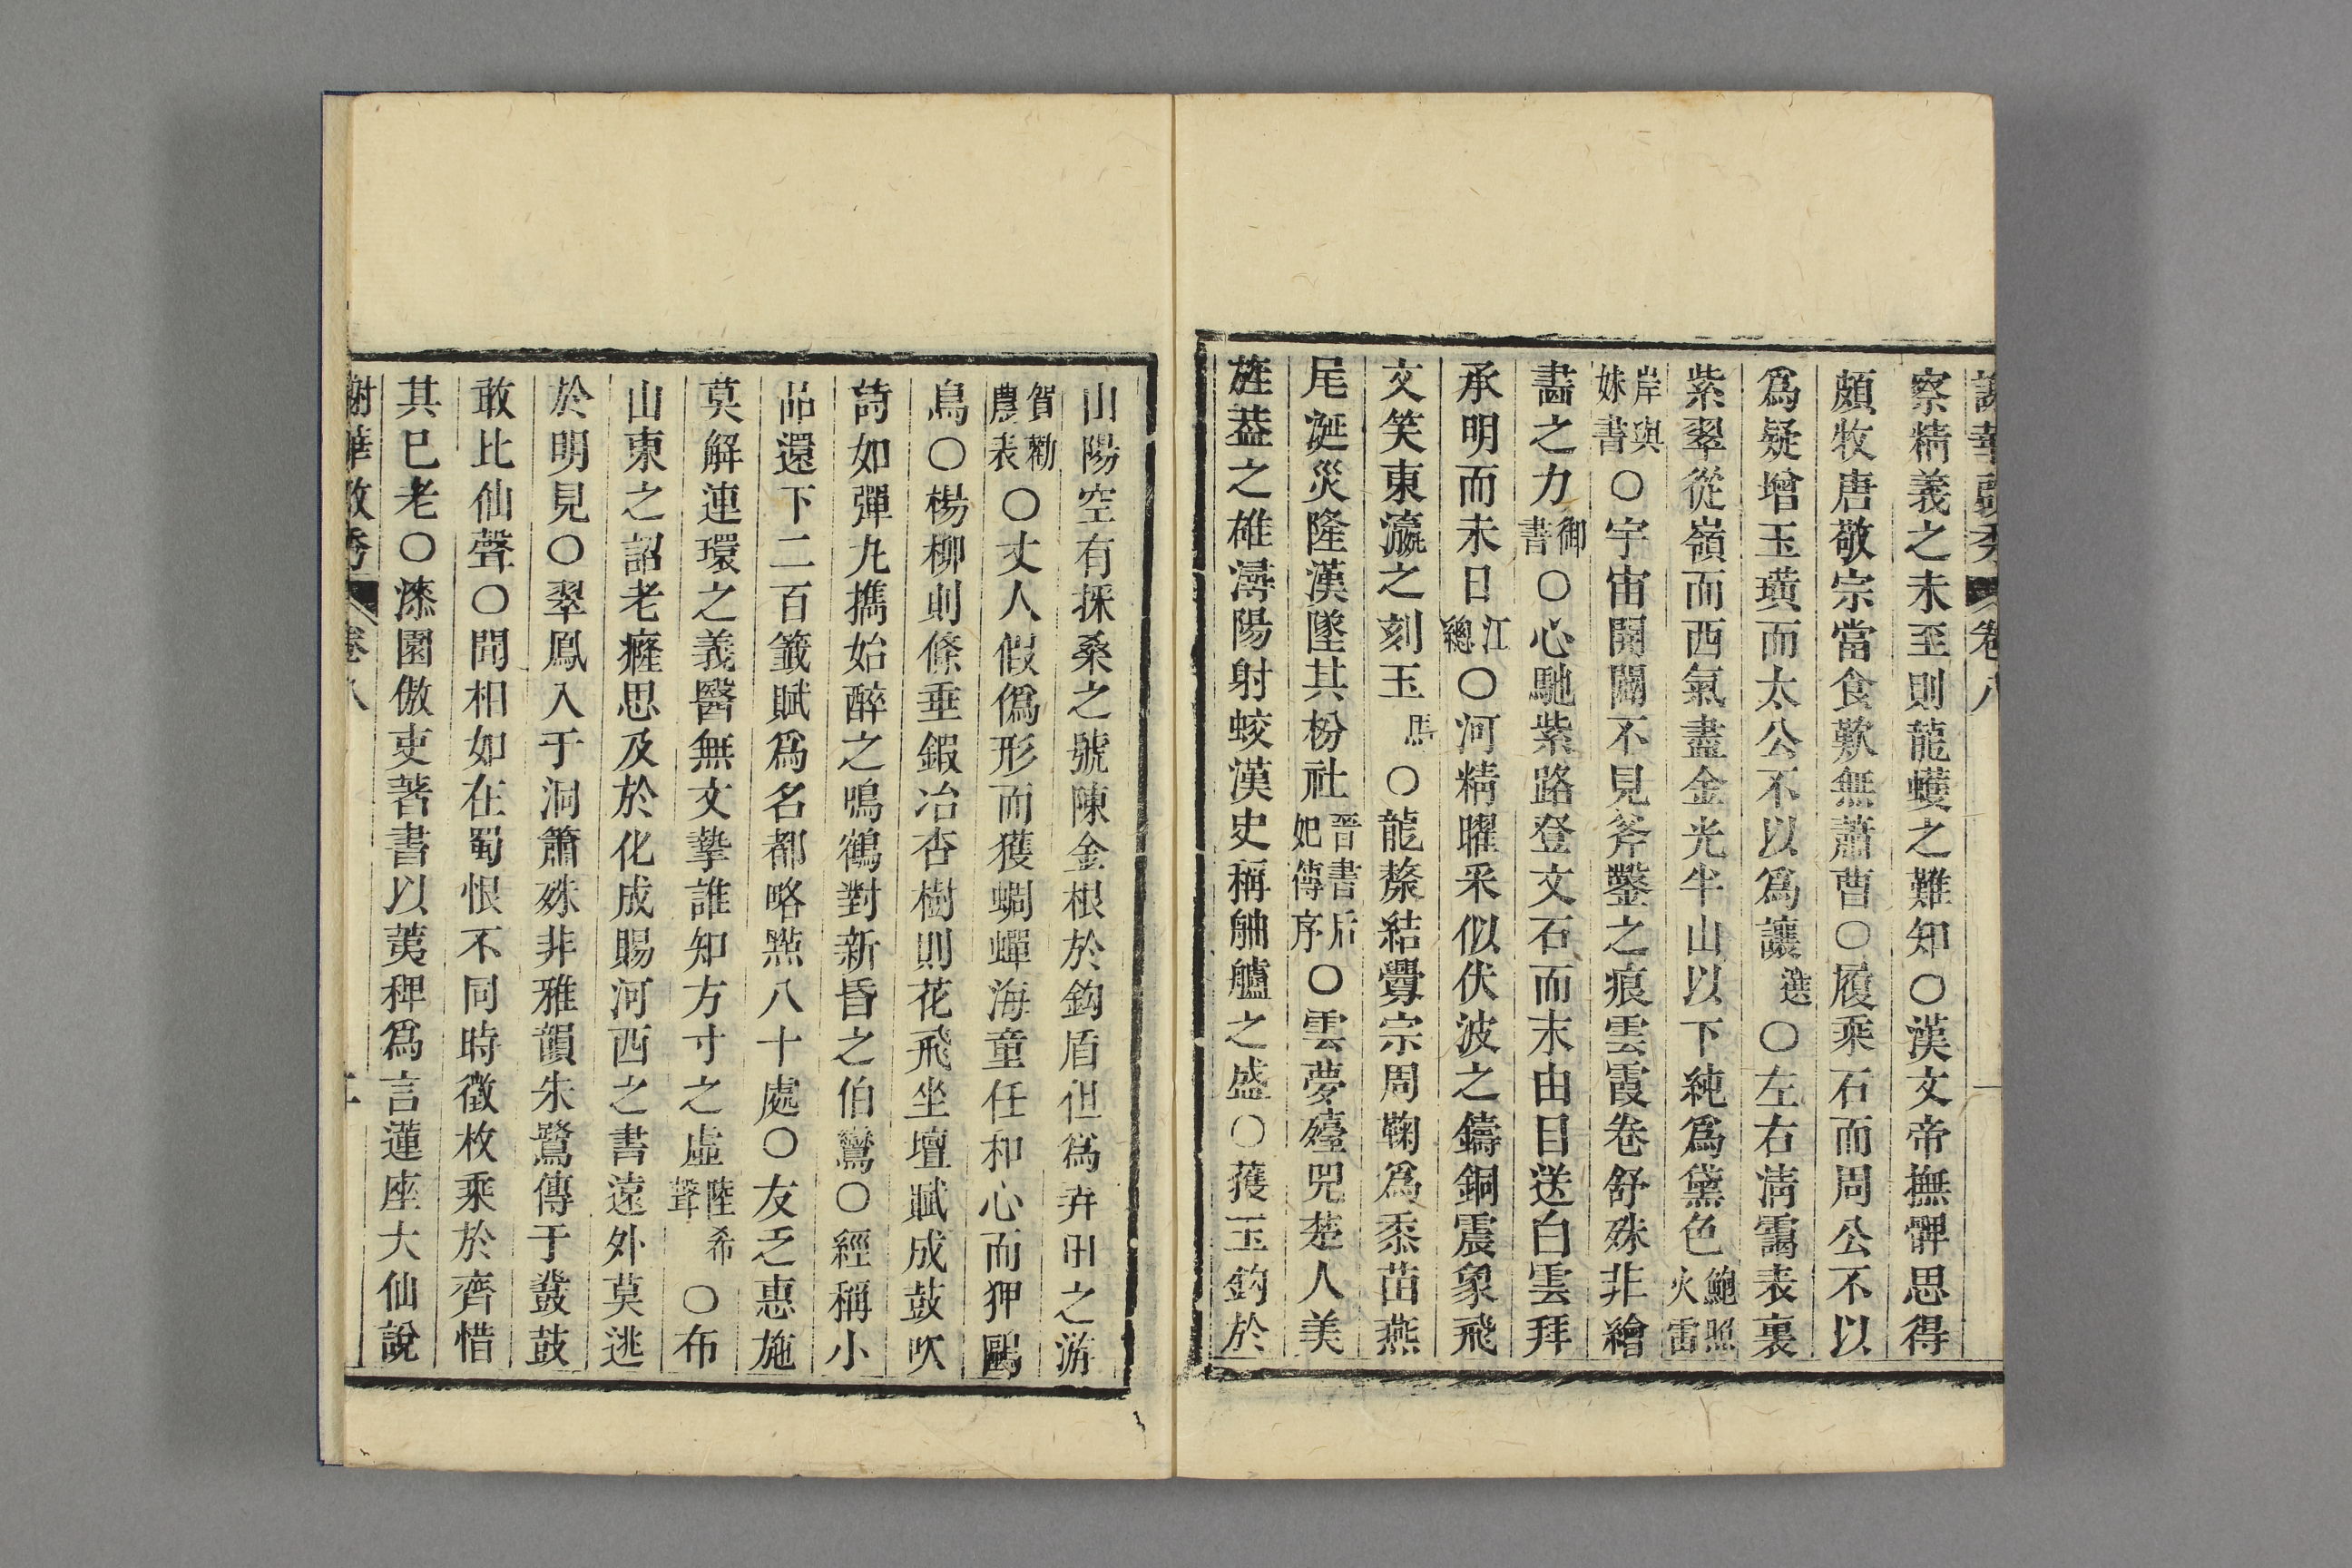 謝華啟秀 卷八
察精義之未至則龍蠖之難知○漢文帝撫髀思得
頗牧唐敬宗當食歎無蕭曹○履乘石而周公不以
爲疑增玉璜而太公不以爲讓選○左右淸靄表裏
紫翠從嶺而西氣盡金光半山以下純爲黛色鮑照火雷
岸與妹書○宇宙開闢不見斧鑿之痕雲霞卷舒殊非繪
畵之力御書○心馳紫路登文石而末由目送白雲拜
承明而未日江總○河精曜采似伏波之鑄銅震象飛
文笑東瀛之刻玉馬○龍漦結釁宗周鞠爲黍苗燕
尾涎災隆漢墜其枌社晉書后妃傳序○雲夢殪兕楚人美
旌葢之雄潯陽射蛟漢史稱舳艫之盛○蒦玉鈎於
山陽空有採桑之號陳金根於鈎盾但爲弄田之游
賀勑農表○丈人假僞形而獲蜩蟬海童任和心而狎鷗
鳥○楊柳則條垂鍜冶杏樹則花飛坐壇賦成鼓吹
詩如彈九擕始醉之鳴鶴對新昏之伯鸞○經稱小
品還下二百籤賦爲名都略㸃八十處○友乏惠施
莫解連環之義醫無文摯誰知方寸之虛陸希聲○布
山東之詔老癃思及於化成賜河西之書遠外莫逃
於明見○翠鳳入于洞簫殊非雅韻朱鷺傳于鼗鼓
敢比仙聲○聞相如在蜀恨不同時徵枚乘於齊惜
其巳老○漆園傲吏著書以荑稗爲言蓮座大仙說
謝華啟秀 卷八 二